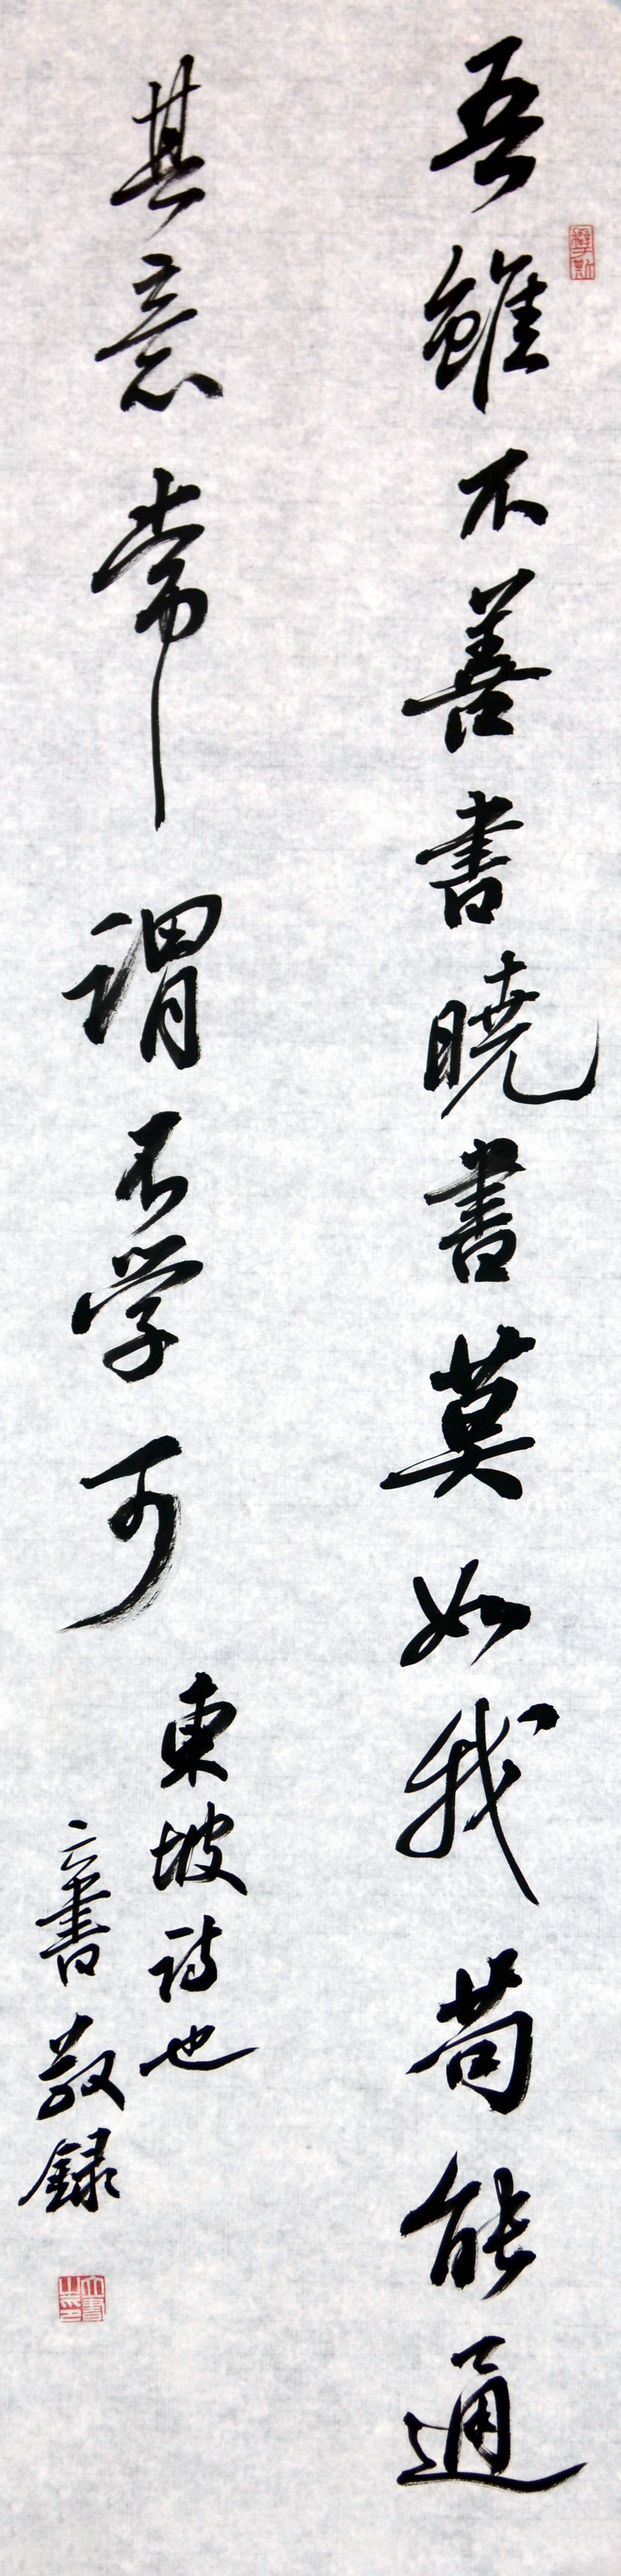 吾雖不善書暁書莫如我苟能通
其意常謂不学可
東坡詩也
六書敬録